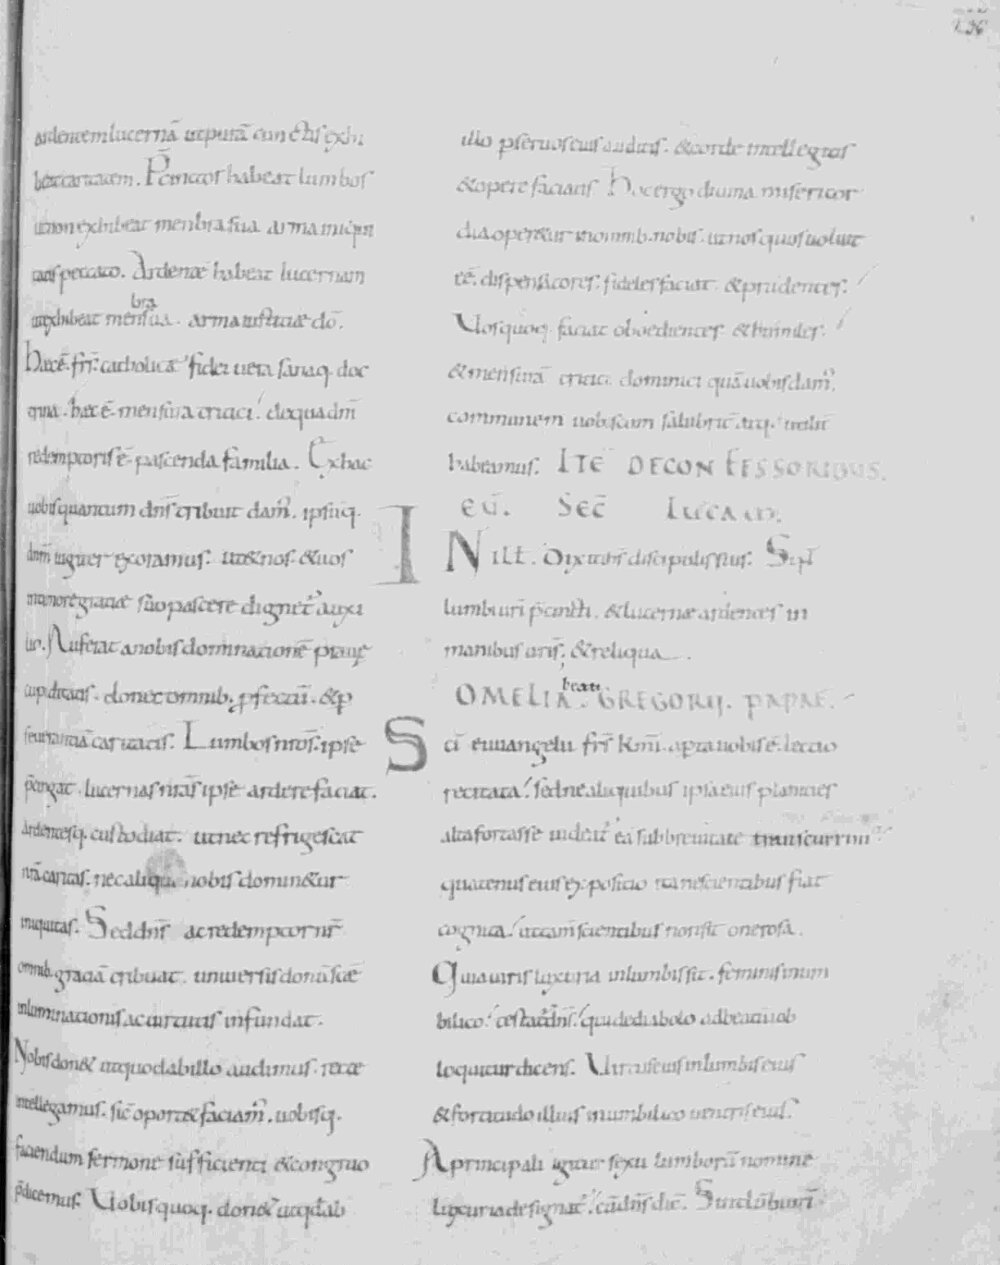 ardentem lucernā ut putā cum et his exhi
beat caritatem. P̄cinctos habeat lumbos
ut non exhibeat menbra sua arma iniqui
tatis peccato. Ardentē habeat lucernam
ut exhibeat menbra sua. arma iustitiae dō.
Haec ē frs̄ catholica fidei uera sanaq. doc
trina. haec ē mensura tritici. de qua dn̄i
redemptoris ē pascenda familia. Ex hac
uobis quantum dn̄s tribuit dam̄. ipsūq.
dnm̄ iugiter exoramus. ut & nos. & uos
in timore gratiae suo pascere dignet̄ auxi
lio. Auferat a nobis dominationē praue
cupiditatis. donet omnib. pfectū. & p
seuerantiā caritatis. Lumbos nr̄os ipse
p̄cingat. lucernas nr̄as ipse ardere faciat.
Ardentesq. custodiat. ut nec refrigescat
nrā caritas. nec aliqua nobis domin&ur
iniquitas. Sed dn̄s ac redemptor nr̄
omnib. gratiā tribuat. uniuersis donū suae
inluminationis ac uirtutis infundat.
Nobis don& ut quod ab illo audimus. recte
intellegamus. sic̄ oport& faciam̄. uobisq.
faciendum sermone sufficienti & congruo
p̄dicemus. Uobis quoq. don& ut qd̄ ab
illo p seruos eius auditis. & corde intellegatis
& opere faciatis. Hoc ergo diuina misericor
dia oper&ur in omnib. nobis. ut nos quos uoluit
eē. dispensatores. fideles faciat. & prudentes.
Uos quoq. faciat oboedientes & humiles.
& mensurā tritici dominici quā uobis dam̄.
communem uobiscum salubrē atq. utilē
habeamus. ITĒ DE CONFESSORIBUS.
EŪ. SEC̄ LUCAM.
IN ILLT. Dixit ihs̄ discipulis suis. Sint
lumbi ur̄i p̄cincti. & lucernae ardentes in
manibus uris̄. & reliqua.
OMELIA beati GREGORII. PAPAE.
Sci euuangelii frs̄ km̄i. aperta uobis ē. lectio
recitata. sed ne aliquibus ipsa eius planities
alta fortasse uideat̄ ea sub breuitate transcurrim̄
quatenus eius expositio ita nescientibus fiat
cognita. ut tam̄ scientibus non sit onerosa.
Quia uiris luxuria in lumbis sit. feminis in um
bilico. testat̄ dn̄s. qui de diabolo ad beatū iob
loquitur dicens. Uirtus eius in lumbis eius
& fortitudo illius in umbilico uentris eius.
A principali igitur sexu lumborū nomine
luxuria designat̄. cū dn̄s dic̄. Sint lūbi ur̄i